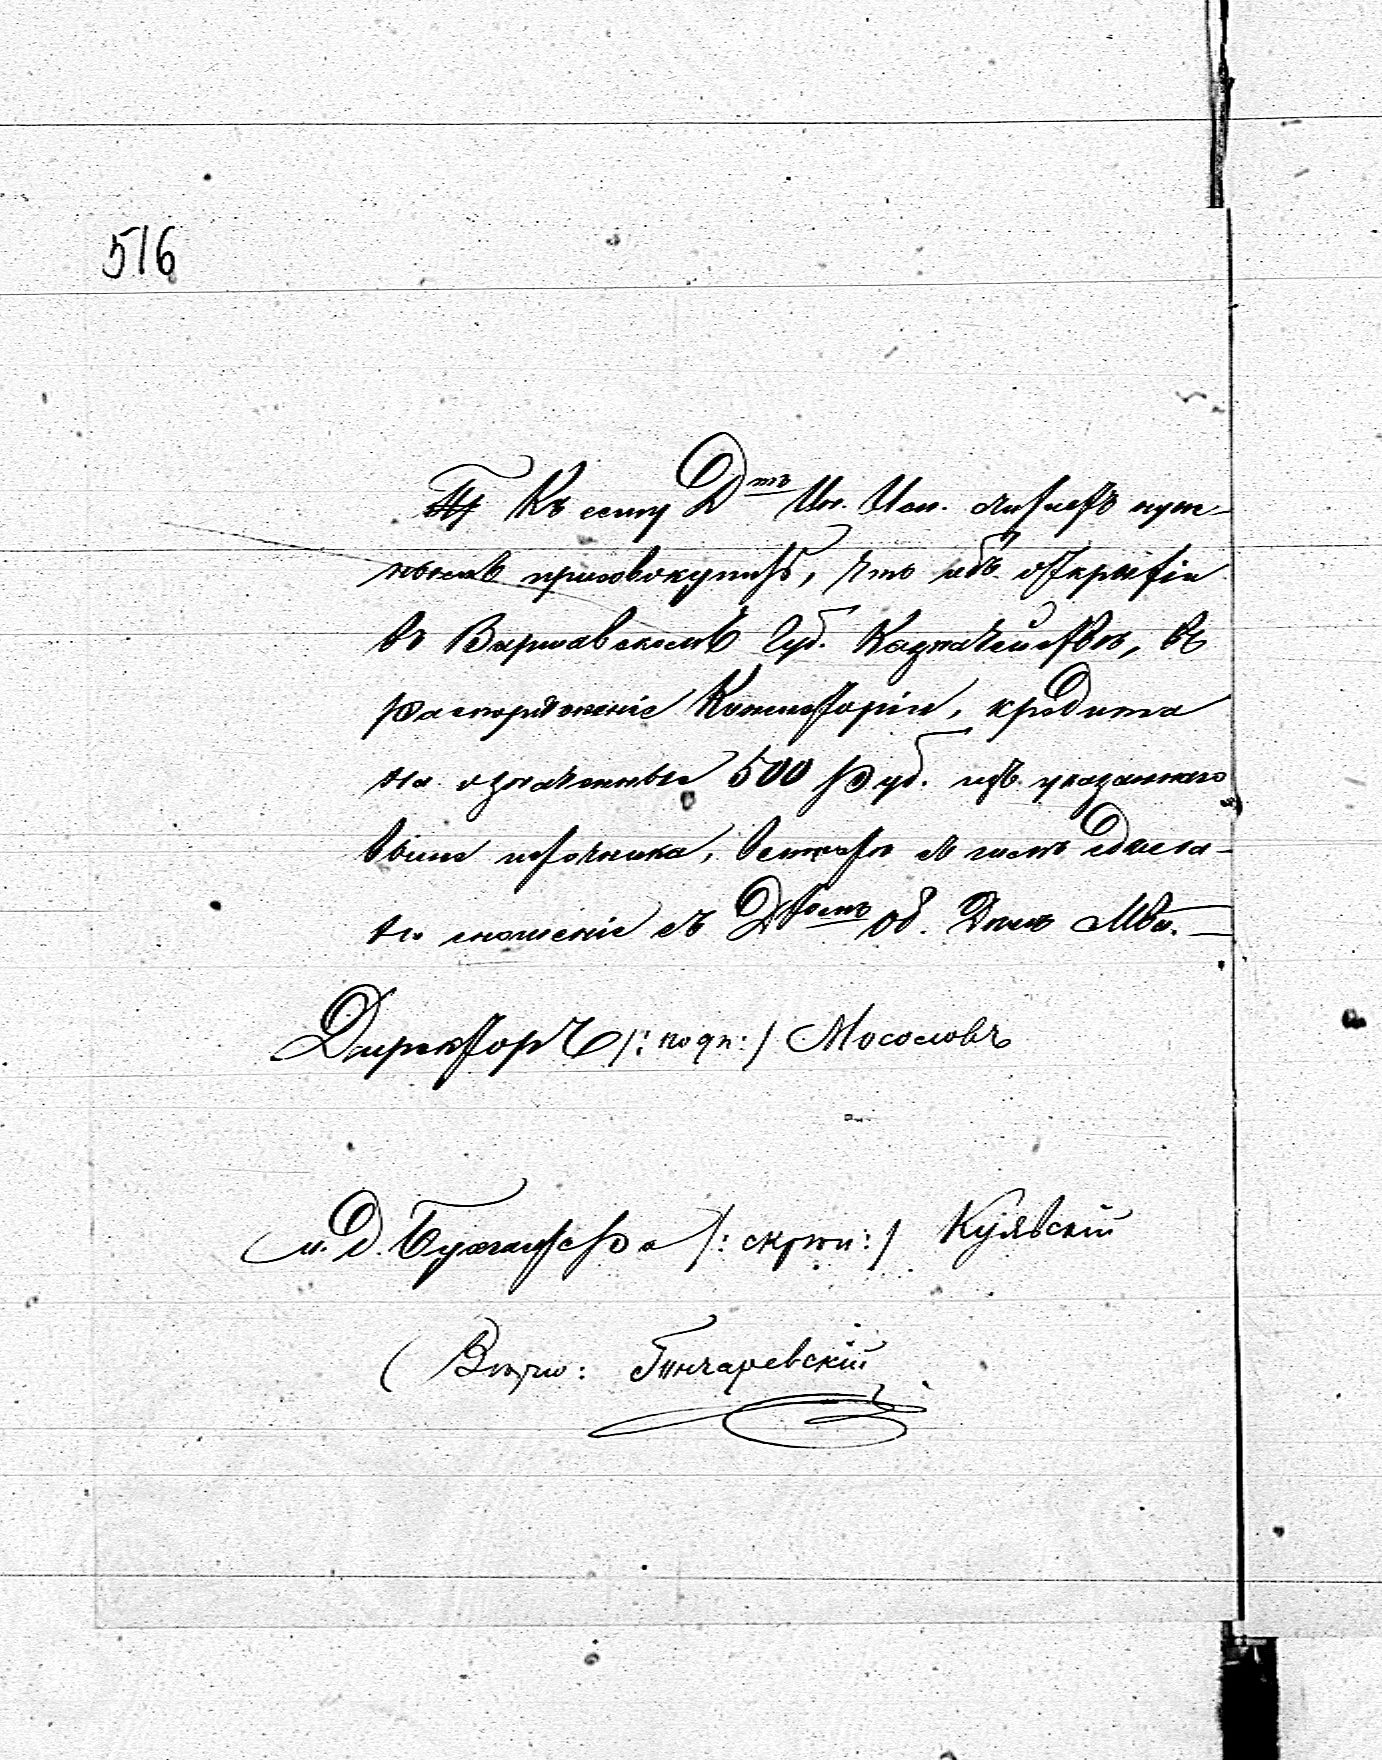 516
Къ сему Д–тъ Ин. Исп. считаетъ нуж-
нымъ присовокупить, что объ открытіи
въ Варшавскомъ Губ. Казначействѣ, въ
распоряженіе Консисторіи, кредита
на означенные 500 Руб. изъ указаннаго
выше источника, вмѣстѣ съ симъ сдѣла-
но сношеніе съ Д–томъ Об. Дѣлъ М–ва.
Директоръ /: подп: / Мосоловъ
И. Д. Бухгалтера /: скрѣп: / Куявскій
Вѣрно: Гончаревскій